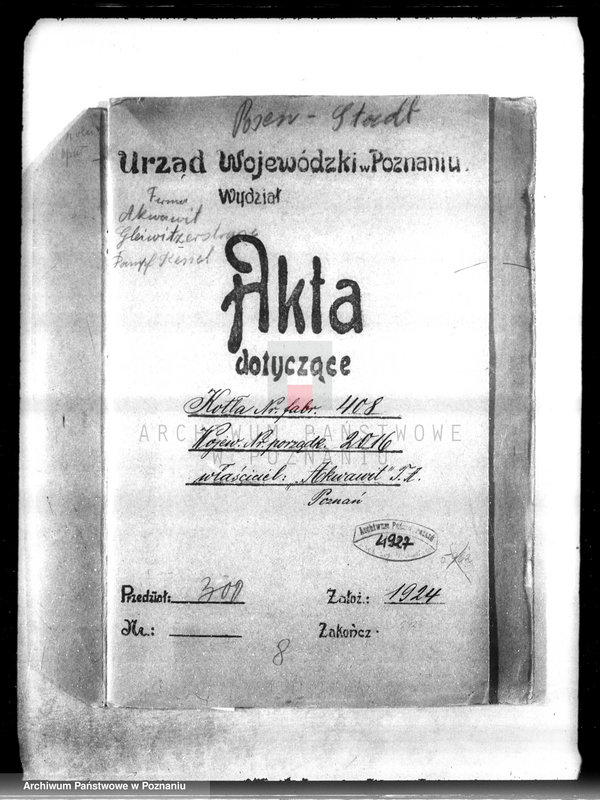 Posen - Stadt
Urząd Wojewódzki w Poznaniu.
Wydział
Firma
Akwawit
Gleiwitzerstrasse
Dampf Kessel
Akta
dotyczące
Kotła Nr. fabr. 408
ARCHIWUM PAŃSTWOWE
Wojew. Nr. porządk. 2016
W POZNANIU
właściciel: "Akwawit" T.A.
Poznań
4927
Przedział: 300
Założ.: 1924
Nr.:
Zakończ.
8
Archiwum Państwowe w Poznaniu